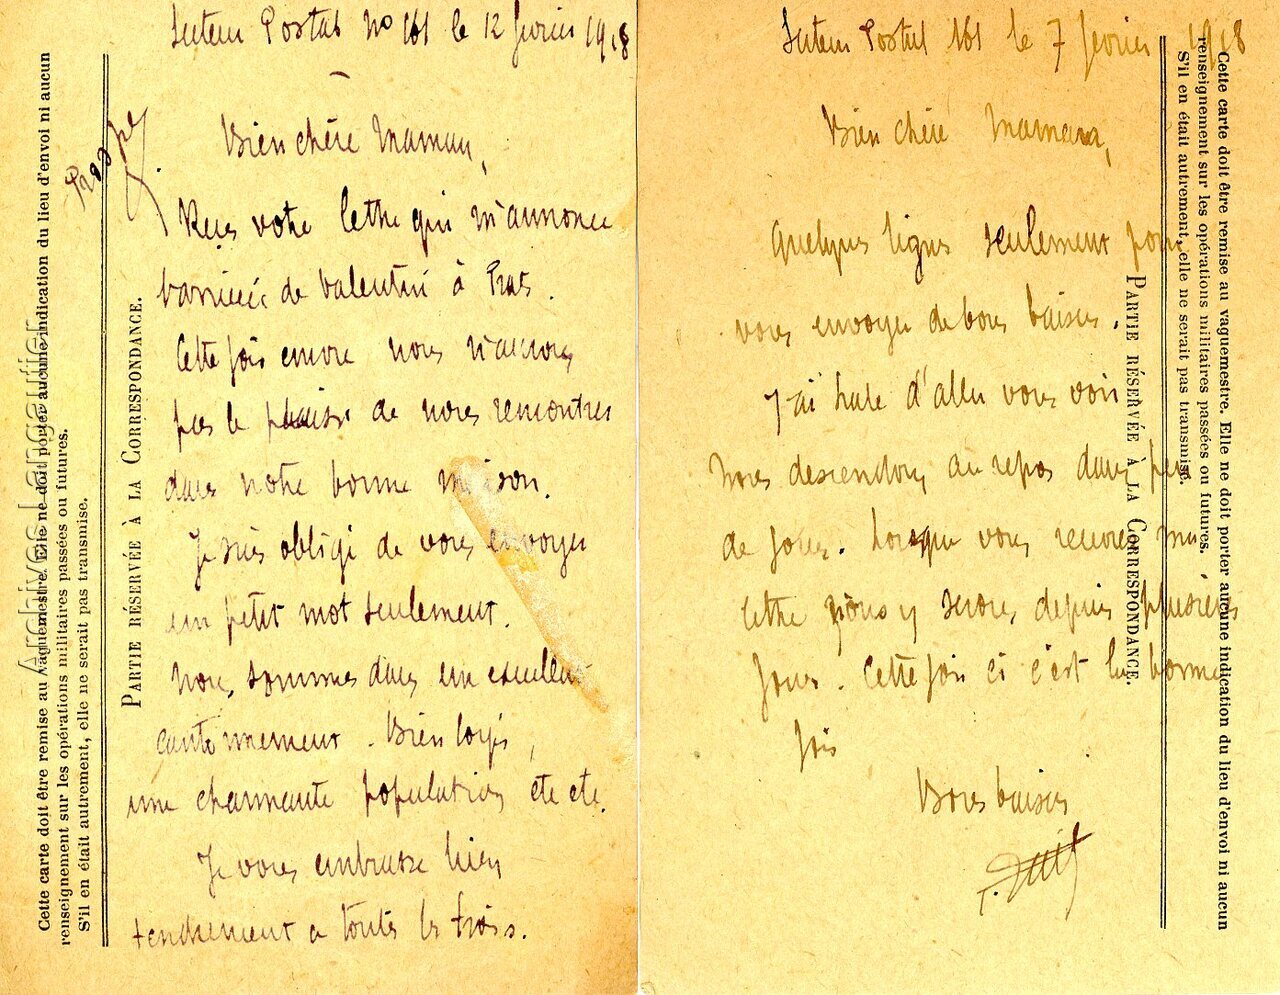 Secteur Postal No 161 le 12 février 1918
Bien chère Maman,
Reçu votre lettre qui m'annonce
l'arrivée de Valentin à Prats.
Cette fois encore nous n'aurons
pas le plaisir de nous rencontrer
dans notre bonne maison.
Je suis obligé de vous envoyer
un petit mot seulement.
Nous sommes dans un excellent
cantonnement. Bien logés,
une charmante population etc etc.
Je vous embrasse bien
tendrement a toutes les trois.
Cette carte doit être remise au vaguemestre. Elle ne doit porter aucune indication du lieu d'envoi ni aucun
renseignement sur les opérations militaires passées ou futures.
S'il en était autrement, elle ne serait pas transmise.
PARTIE RÉSERVÉE À LA CORRESPONDANCE.
Archives Langautier
Secteur Postal 161 le 7 février 1918
Bien chère Maman,
Quelques lignes seulement pour
vous envoyer de bons baisers.
J'ai hate d'aller vous voir
Nous descendons au repos dans peu
de jours. Lorsque vous recevrez ma
lettre nous y serons depuis plusieurs
jours. Cette fois ci c'est la bonne
fois
Bons baisers
Cette carte doit être remise au vaguemestre. Elle ne doit porter aucune indication du lieu d'envoi ni aucun
renseignement sur les opérations militaires passées ou futures.
S'il en était autrement, elle ne serait pas transmise.
PARTIE RÉSERVÉE À LA CORRESPONDANCE.